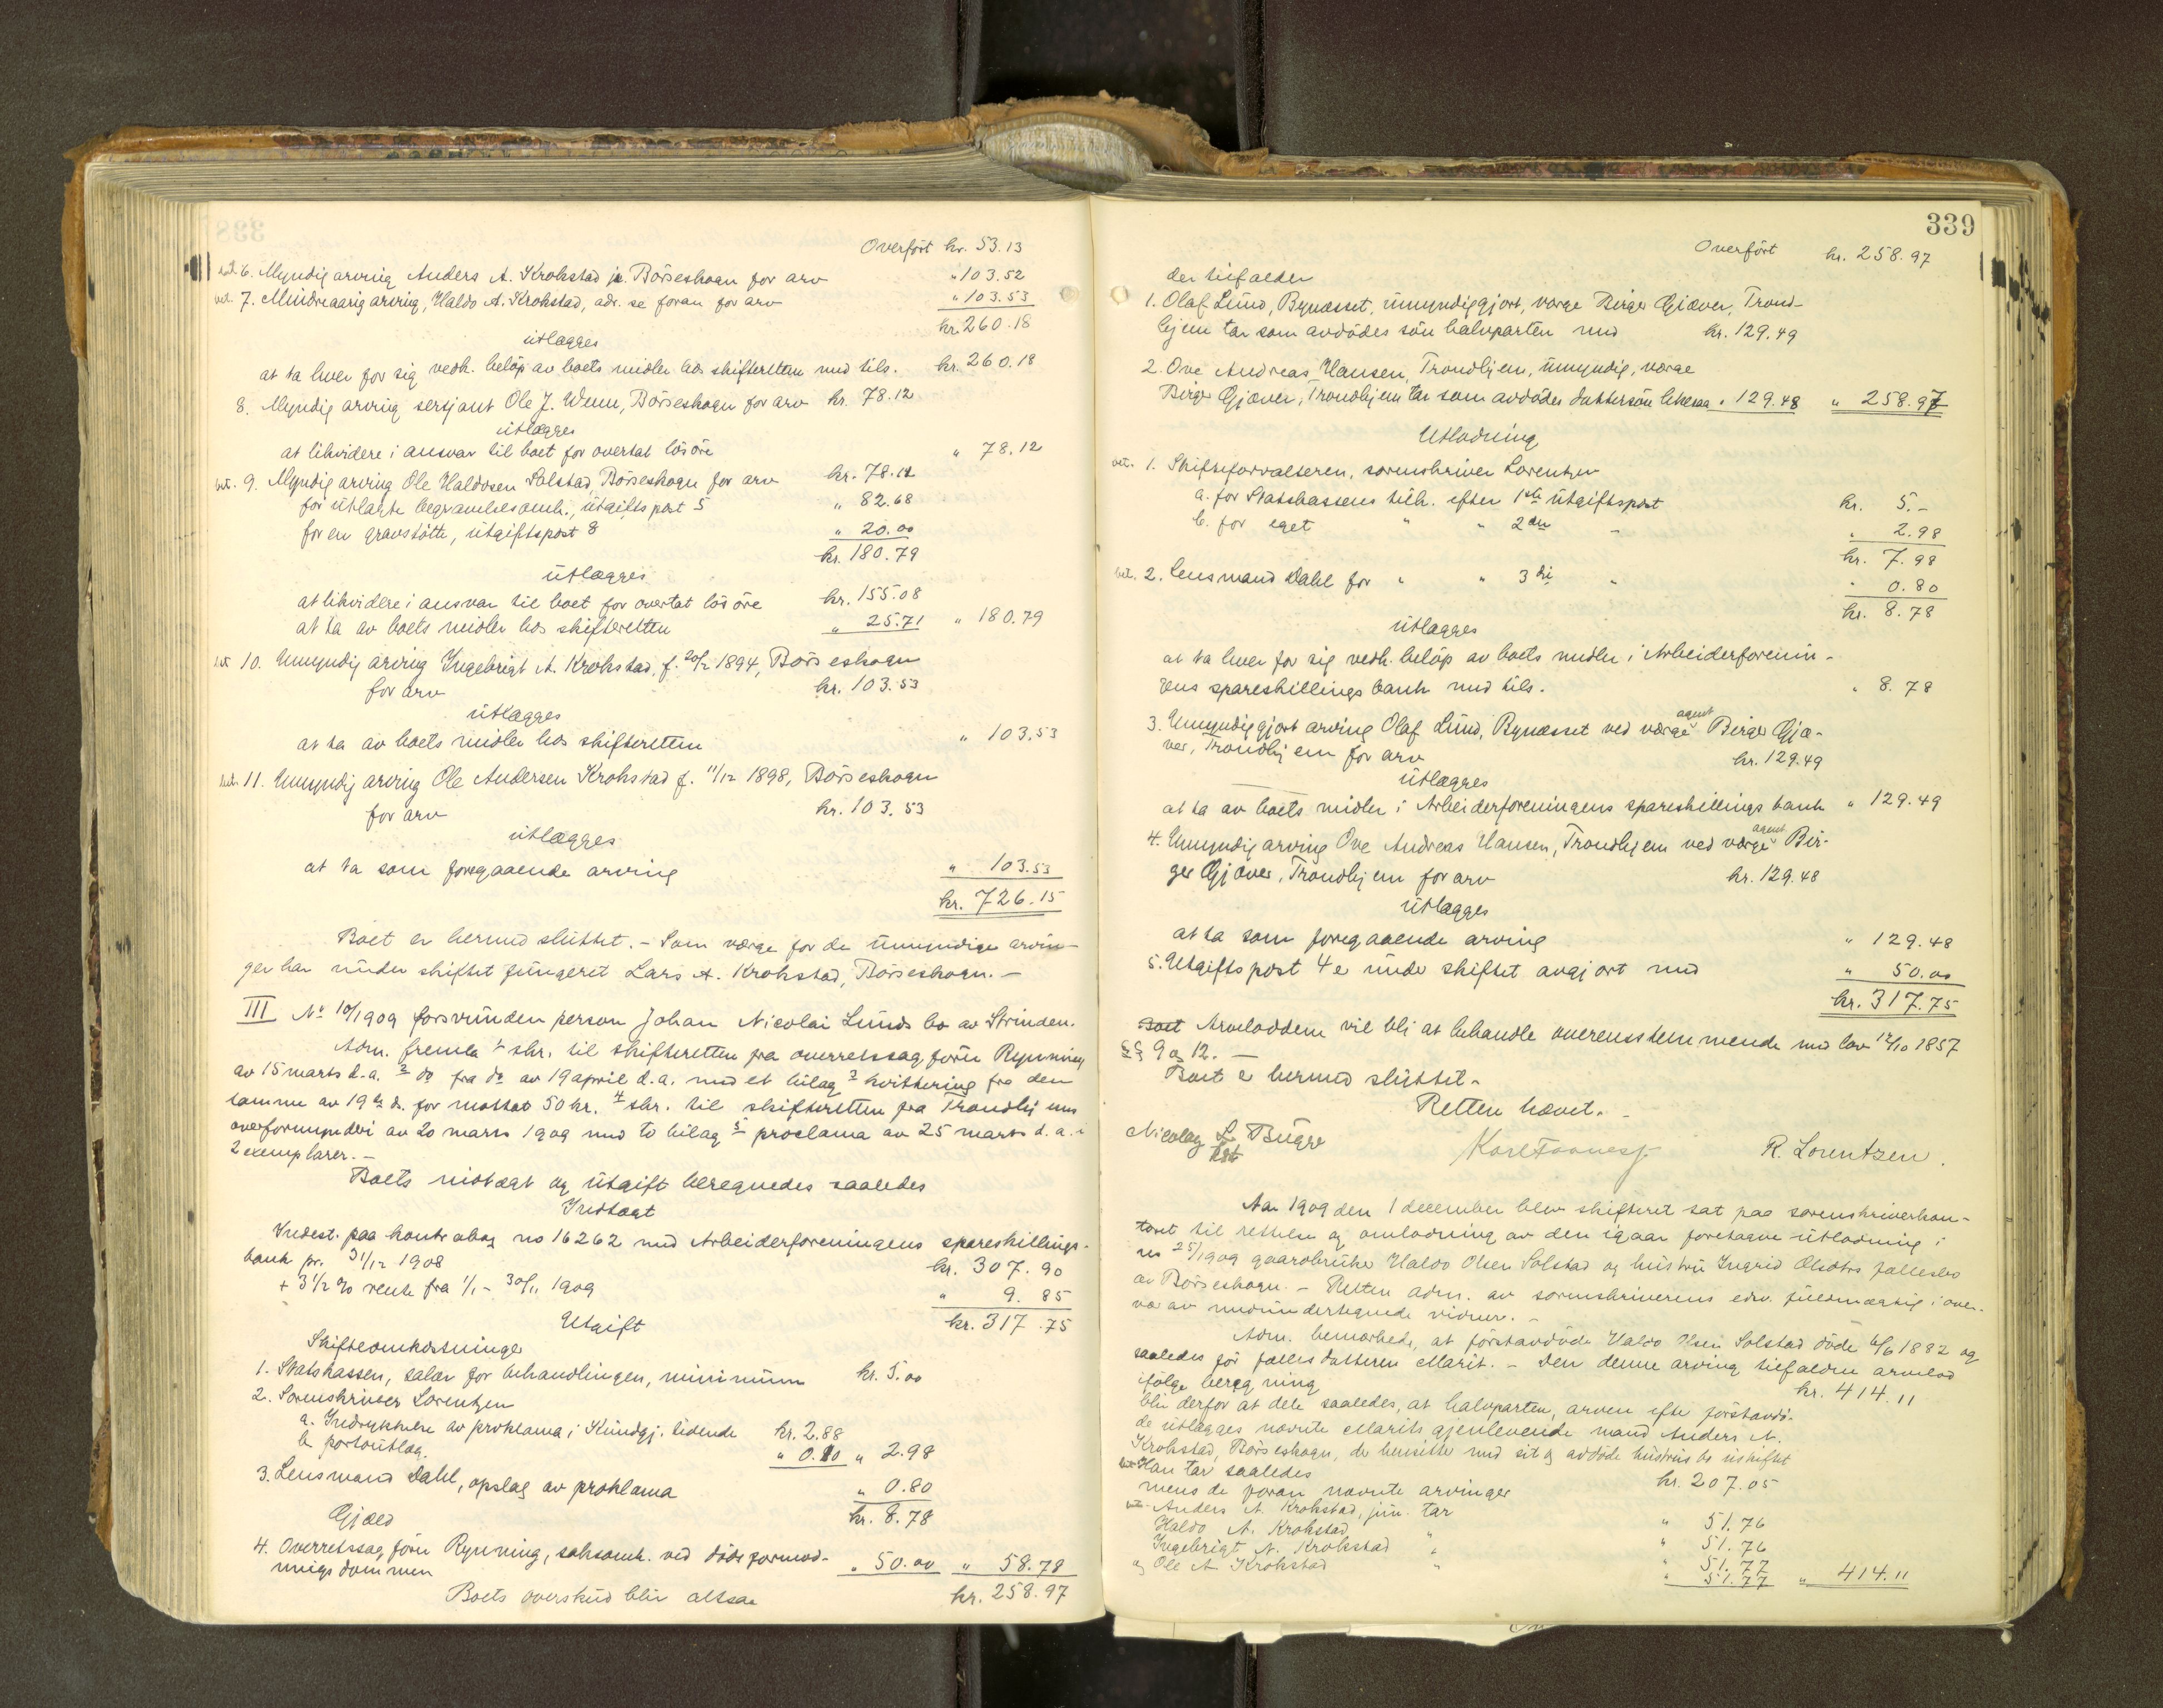 Overført kr. 53.13
bet. 6. Myndig arving Anders A. Krokstad jr. Börseskogn for arv " 103.52
bet. 7. Mindreaarig arving, Haldo A. Krokstad, adr. se foran for arv " 103.53
kr. 260.18
utlægges
at ta hver for sig vedk. beløp av boets midler hos skifteretten med tils. kr. 260.18
8. Myndig arving sersjant Ole J. Wenn, Börseskogn for arv kr. 78.12
utlægges
at likvidere i ansvar til boet for overtat lösöre " 78.12
bet. 9. Myndig arving Ole Haldosen Solstad Börseskogn for arv kr. 78.12
for utlagte begravelsesomk., utgiftspost 5 " 82.68
for en gravstötte, utgiftspost 8 " 20.00
kr. 180.79
utlægges
at likvidere i ansvar til boet for overtat lösöre kr. 155.08
at ta av boets midler hos skifteretten " 25.71 " 180.79
bet. 10. Umyndig arving Ingebrigt A. Krokstad, f. 20/2 1894, Börseskogn
for arv kr. 103.53
utlægges
at ta av boets midler hos skifteretten " 103.53
bet. 11. Umyndig arving Ole Andersen Krokstad f. 11/12 1898, Börseskogn
for arv kr. 103.53
utlægges
at ta som foregaaende arving " 103.53
kr. 726.15
Boet er hermed sluttet. - Som værge for de umyndige arvin-
ger har under skiftet fungeret Lars A. Krokstad, Börseskogn. -
III No 10/1909 forsvunden person Johan Nicolai Lunds bo av Strinden.
Adm. fremla 1 skr. til skifteretten fra overretssagförer Rynning
av 15 marts d.a. 2 do fra do av 19 april d.a. med et bilag 3 kvittering fra den
samme av 19 ds. for mottat 50 kr. 4 skr. til skifteretten fra Trondhjems
overformynderi av 20 mars 1909 med to bilag 5 proclama av 25 marts d.a. i
2 exemplarer. -
Boets indtægt og utgift beregnedes saaledes
Indtægt
Indest. paa kontrabog no 16262 med Arbeiderforeningens spareskillings-
bank pr. 31/12 1908 kr. 307.90
+ 3 1/2 % rente fra 1/1 - 30/11 1909 " 9.85
Utgift kr. 317.75
Skifteomkostninger
1. Statskassen, salær for behandlingen, minimum kr. 5.00
2. Sorenskriver Lorentzen
a. Indrykkelse av proklama i Kundgj. tidende kr. 2.88
b. portoutlæg " 0.10 " 2.98
3. Lensmand Dahl, opslag av proklama " 0.80
kr. 8.78
Gjæld
4. Overretssagförer Rynning, saksomk. ved dödsformod-
ningsdommen " 50.00 " 58.78
Boets overskud blir altsaa kr. 258.97
339
Overført kr. 258.97
der tilfalder
1. Olaf Lund, Bynæsset, umyndiggjort, værge Birger Gjæver, Trond-
hjem tar som avdödes sön halvparten med kr. 129.49
2. Ove Andreas Hansen, Trondhjem, umyndig, værge
Birger Gjæver, Trondhjem tar som avdödes dattersön likesaa " 129.48 " 258.97
Utlodning
bet. 1. Skifteforvalteren, sorenskriver Lorentzen
a. for Statskassens tilk. efter 1ste utgiftspost kr. 5.-
b. for eget " " 2den - " 2.98
kr. 7.98
bet. 2. Lensmand Dahl for " " 3die " " 0.80
kr. 8.78
utlægges
at ta hver for sig vedk. beløp av boets midler i Arbeiderforenin-
gens spareskillingsbank med tils. " 8.78
3. Umyndiggjort arving Olaf Lund, Bynæsset ved værge agent Birger Gjæ-
ver, Trondhjem for arv kr. 129.49
utlægges
at ta av boets midler i Arbeiderforeningens spareskillingsbank " 129.49
4. Umyndig arving Ove Andreas Hansen, Trondhjem ved værge agent Bir-
ger Gjæver, Trondhjem for arv kr. 129.48
utlægges
at ta som foregaaende arving " 129.48
5. Utgiftspost 4 er under skiftet avgjort med " 50.00
kr. 317.75
Boet Arveloddene vil bli at behandle overensstemmende med lov 12/10 1857
§§ 9 og 12. -
Boet er hermed sluttet. -
Retten hævet. -
Nicolay L. Bugge
kst
R. Lorentzen.
Aar 1909 den 1 december blev skifteret sat paa sorenskriverkon-
toret til rettelse og omlodning av den igaar foretagne utlodning i
no 25/1909 gaardbruker Haldo Olsen Solstad og hustru Ingrid Olsdtrs fællesbo
av Börseskogn. - Retten adm. av sorenskriverens edsv. fuldmægtig i over-
vær av medundertegnede vidner. -
Adm. bemerkede, at förstavdöde Haldo Olsen Solstad döde 6/6 1882 og
saaledes för fælles datteren Marit. - Den denne arving tilfaldne arvelod
ifölge beregning kr. 414.11
blir derfor at dele saaledes, at halvparten, arven efter förstavdö-
de utlægges nævnte Marits gjenlevende mand Anders A.
Krokstad, Börseskogn, der hensitter med sit og avdöde hustrus bo uskiftet
bet. Han tar saaledes kr. 207.05
mens de foran nævnte arvinger
bet. Anders A. Krokstad, jun. tar " 51.76
Haldo A. Krokstad " " 51.76
Ingebrigt A. Krokstad " " 51.77
og Ole A. Krokstad " " 51.77 " 414.11